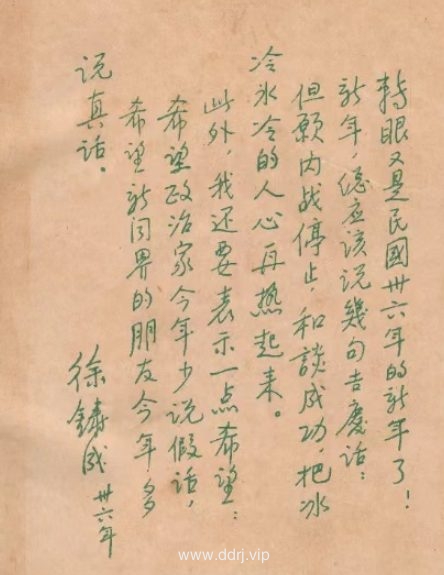 轉眼又是民國卅六年的新年了！
新年，總应该说幾句吉慶话：
但願内战停止，和談成功，把冰
冷冰冷的人心再热起来。
此外，我还要表示一点希望：
希望政治家今年少说假话，
希望新闻界的朋友今年多
说真话。
徐鑄成 卅六年
www.ddrj.vip